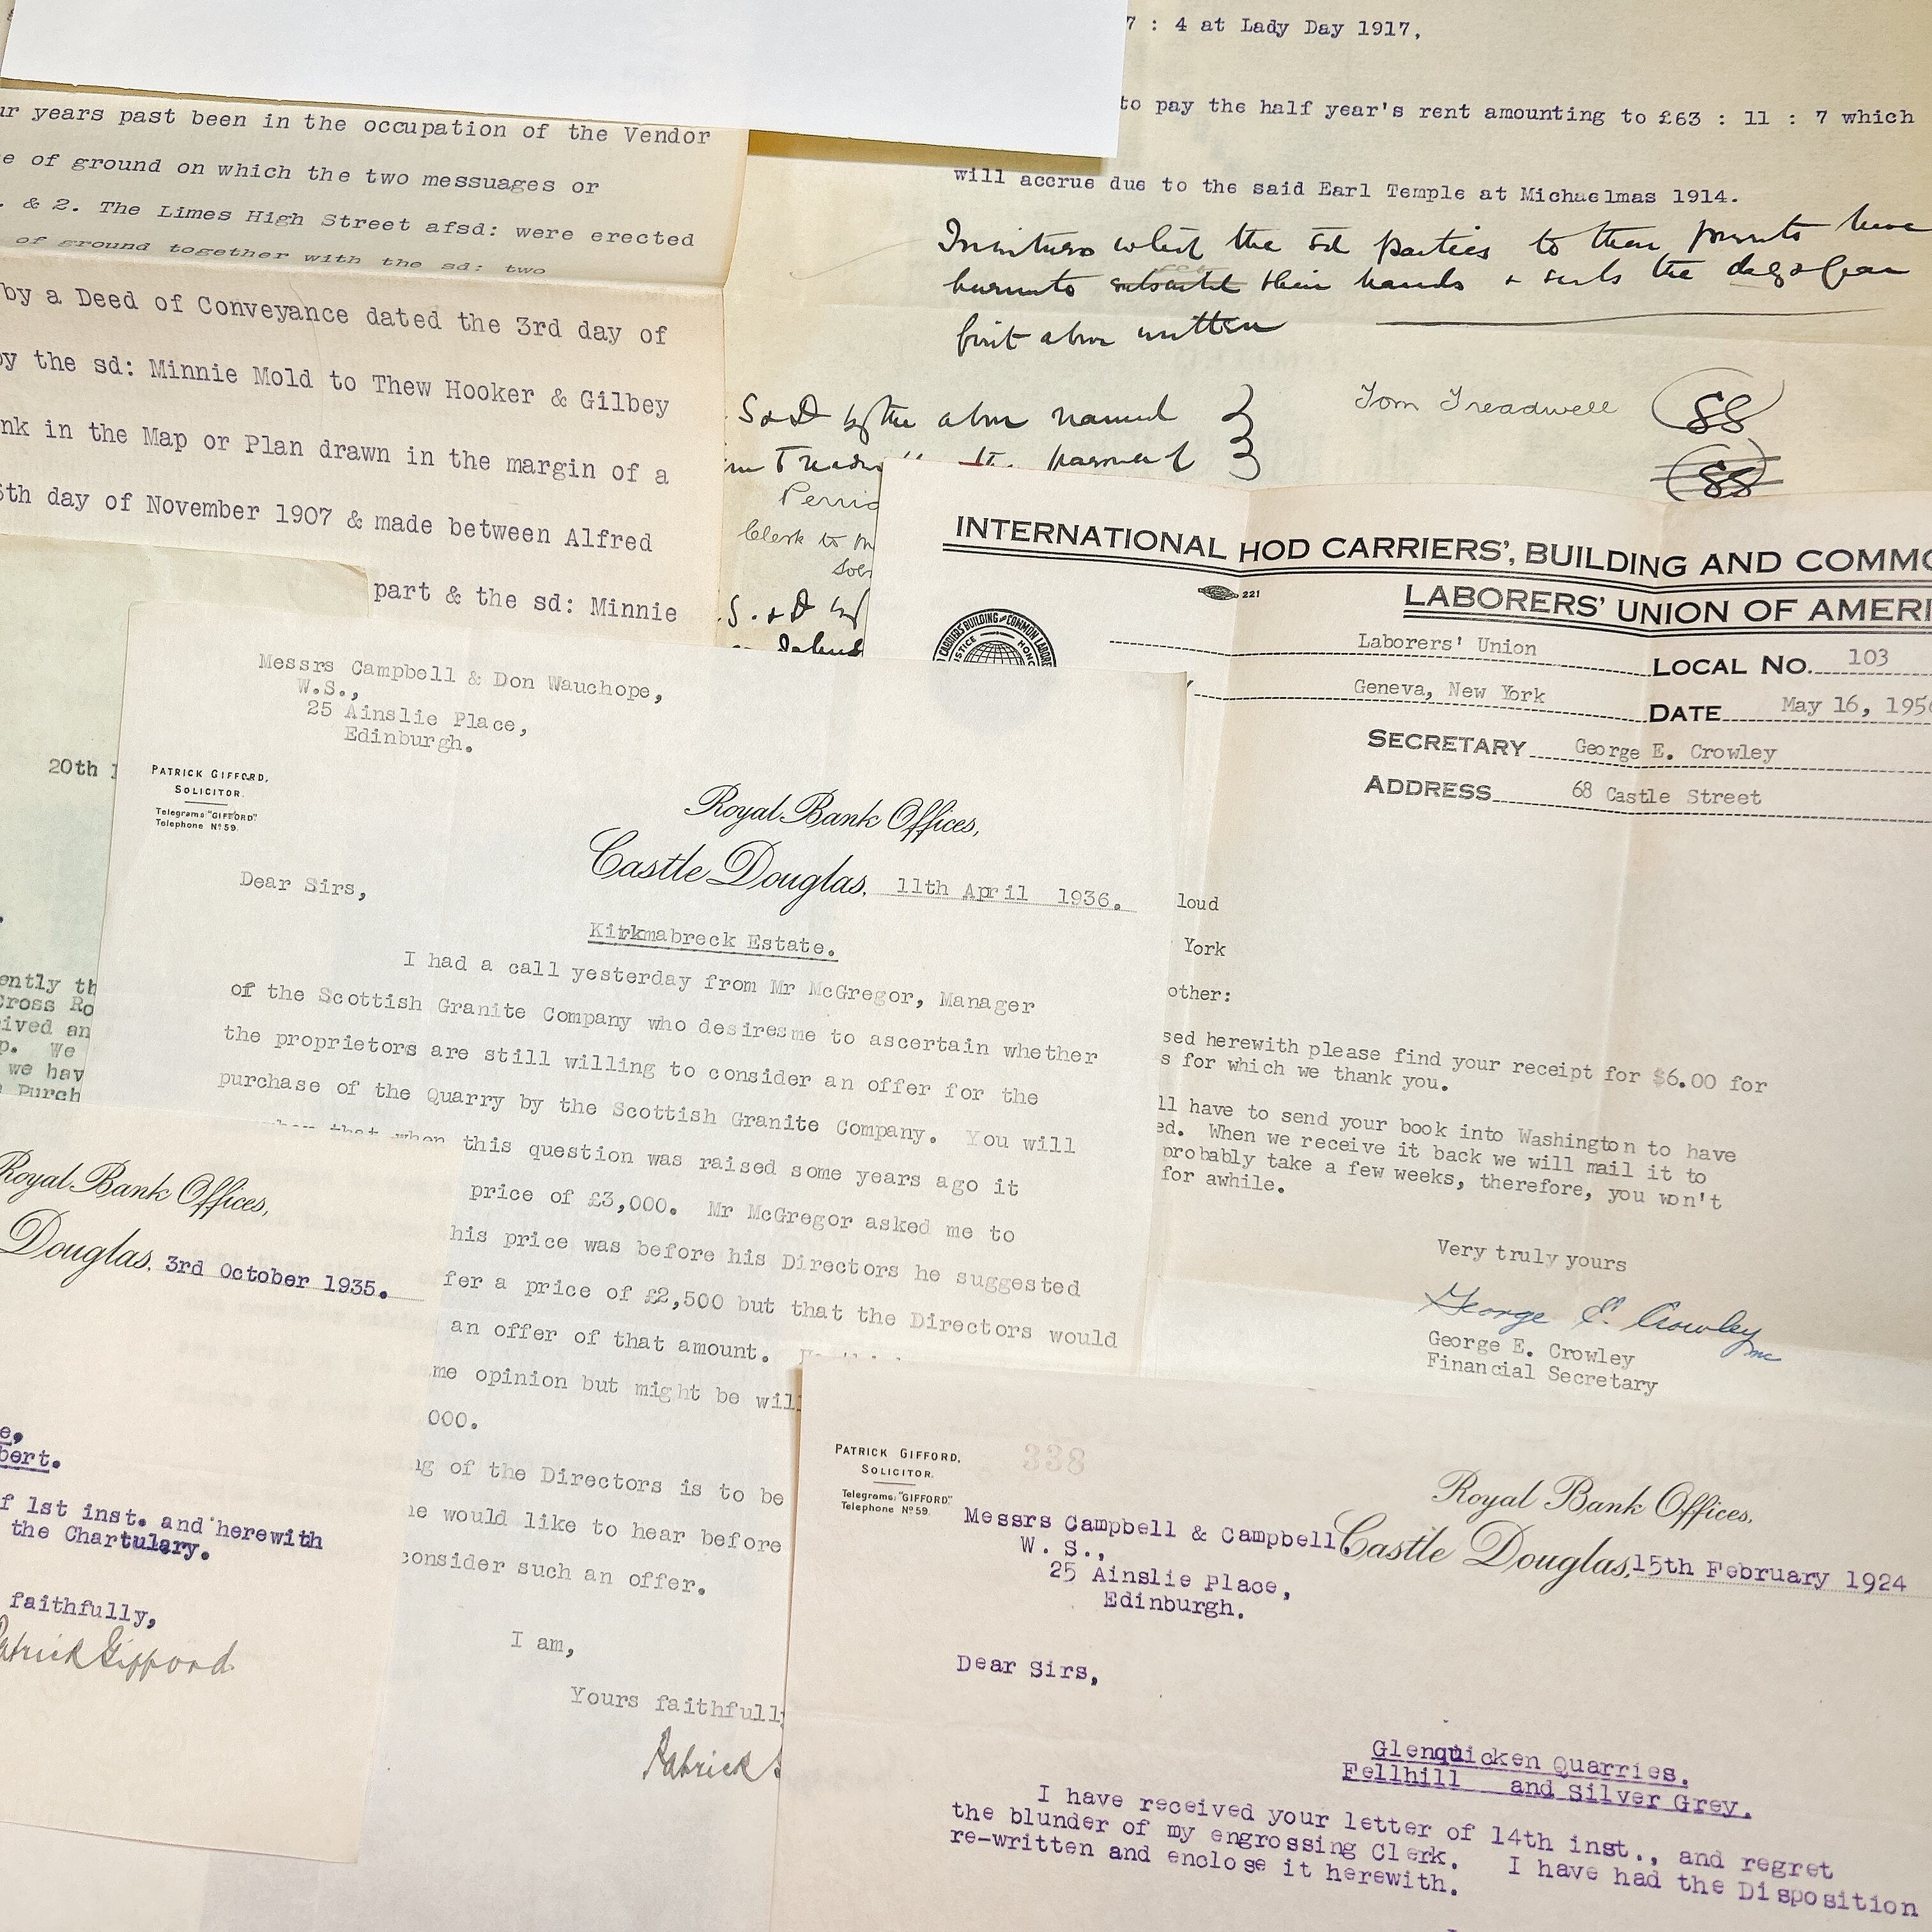 ur years past been in the occupation of the Vendor
e of ground on which the two messuages or
. & 2. The Limes High Street afsd: were erected
of ground together with the sd: two
by a Deed of Conveyance dated the 3rd day of
by the sd: Minnie Mold to Thew Hooker & Gilbey
nk in the Map or Plan drawn in the margin of a
5th day of November 1907 & made between Alfred
part & the sd: Minnie
7 : 4 at Lady Day 1917,
to pay the half year's rent amounting to £63 : 11 : 7 which
will accrue due to the said Earl Temple at Michaelmas 1914.
In witness whof the sd parties to these presents have
hereunto set their hands & seals the day & year
first above written
S & D by the above named
Tom Treadwell
SS
SS
Clerk to
S. & D by
INTERNATIONAL HOD CARRIERS', BUILDING AND COMMO
LABORERS' UNION OF AMERI
221
Laborers' Union
LOCAL NO. 103
Geneva, New York
DATE May 16, 195
SECRETARY George E. Crowley
ADDRESS 68 Castle Street
loud
York
other:
sed herewith please find your receipt for $6.00 for
s for which we thank you.
ll have to send your book into Washington to have
ed. When we receive it back we will mail it to
probably take a few weeks, therefore, you won't
for awhile.
Very truly yours
George E. Crowley
George E. Crowley
Financial Secretary
20th
ently th
Cross Ro
ived an
p. We
we hav
Purch
Messrs Campbell & Don Wauchope,
W.S.,
25 Ainslie Place,
Edinburgh.
PATRICK GIFFORD,
SOLICITOR.
Telegrams: "GIFFORD"
Telephone No 59.
Royal Bank Offices,
Castle Douglas, 11th April 1936.
Dear Sirs,
Kirkmabreck Estate.
I had a call yesterday from Mr McGregor, Manager
of the Scottish Granite Company who desires me to ascertain whether
the proprietors are still willing to consider an offer for the
purchase of the Quarry by the Scottish Granite Company. You will
that when this question was raised some years ago it
price of £3,000. Mr McGregor asked me to
his price was before his Directors he suggested
fer a price of £2,500 but that the Directors would
an offer of that amount.
me opinion but might be will
000.
ng of the Directors is to be
he would like to hear before
consider such an offer.
I am,
Yours faithfull
Patrick
Royal Bank Offices,
Douglas, 3rd October 1935.
e,
bert.
f 1st inst. and herewith
the Chartulary.
faithfully,
Patrick Gifford
PATRICK GIFFORD,
SOLICITOR.
Telegrams: "GIFFORD"
Telephone No 59.
338
Royal Bank Offices,
Castle Douglas, 15th February 1924
Messrs Campbell & Campbell,
W. S.,
25 Ainslie Place,
Edinburgh.
Dear Sirs,
Glenquicken Quarries.
Fellhill and Silver Grey.
I have received your letter of 14th inst., and regret
the blunder of my engrossing Clerk. I have had the Disposition
re-written and enclose it herewith.